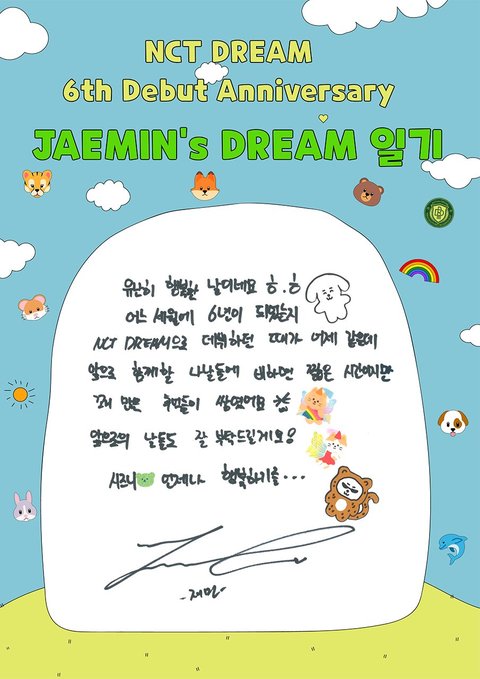 NCT DREAM
6th Debut Anniversary
JAEMIN's DREAM 일기
유난히 행복한 날이네요 ㅎ.ㅎ
어느 세월에 6년이 되었는지
NCT DREAM으로 데뷔하던 때가 어제 같은데
앞으로 함께할 나날들에 비하면 짧은 시간이지만
꽤 많은 추억들이 쌓였어요
앞으로의 날들도 잘 부탁드릴게요!
시즈니 언제나 행복하기를...
-재민-